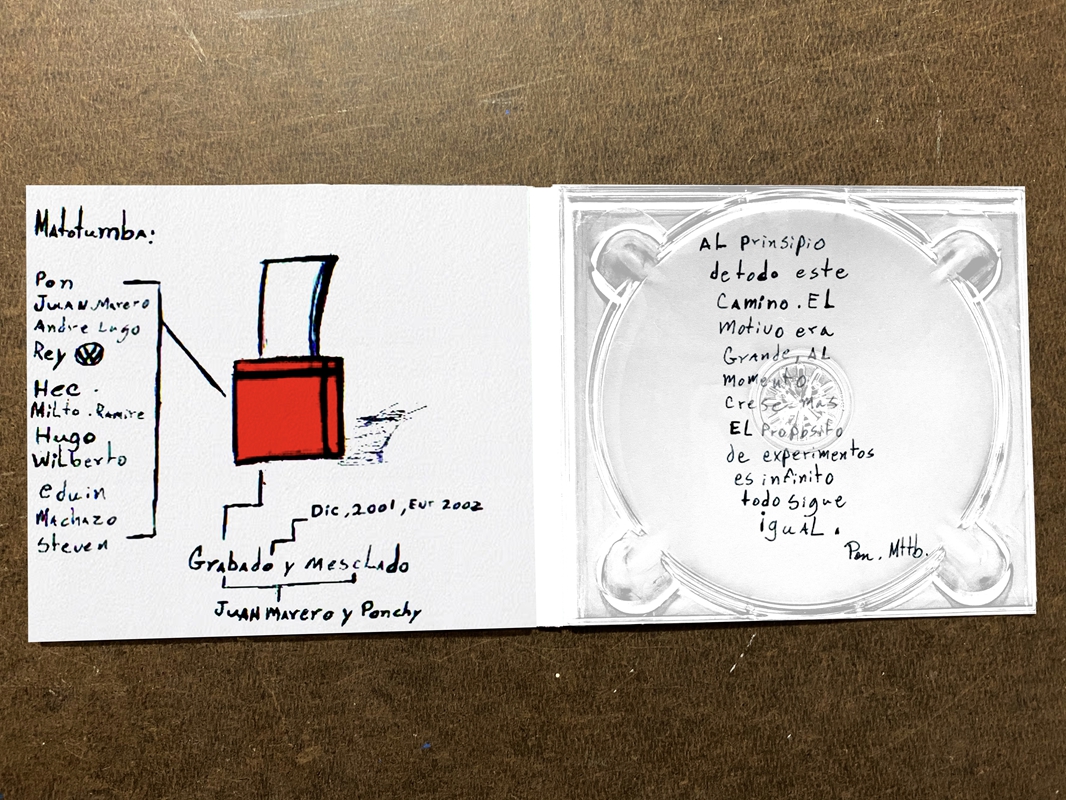 Matotumba:
Pon
JUAN.Marero
Andre Lugo
Rey VW
Hec.
Milto.Ramire
Hugo
Wilberto
eduin
Machazo
Steven
Dic,2001,Eur 2002
Grabado y mesclado
JUAN Marero y Ponchy
AL prinsipio
de todo este
Camino. EL
motivo era
Grande, AL
momento
crese mas
EL Proposito
de experimentos
es infinito
todo sigue
iguAL.
Pon. Mttb.